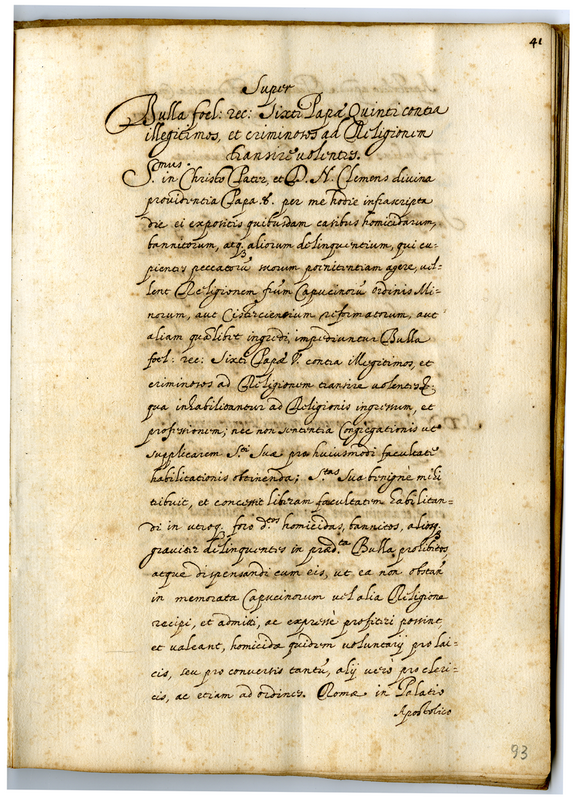 41
Super
Bulla foel: rec: Sixti Papæ Quinti contra
illegitimos, et criminosos ad Religionem
transire volentes.
S.mus in Christo Pater, et D. N. Clemens divina
providentia Papa 8. per me hodie infrascripta
die ei expositis quibusdam casibus homicidarum,
bannitorum, atq3 aliorum delinquentium, qui cu-
pientes peccatorū suorum pœnitentiam agere, vel-
lent Religionem frūm Capucinorū ordinis Mi-
norum, aut Cisterciensium reformatorum, aut
aliam quālibet ingredi, impediuntur Bulla
foel: rec: Sixti Papæ V. contra illegitimos, et
criminosos ad Religionem transire volentes,
qua inhabilitantur ad Religionis ingressum, et
professionem; nec non sententia Congregationis ut
supplicarem S.ti Suæ pro huiusmodi facultate
habilitationis obtinenda; S.tas Sua benigne mihi
tribuit, et concessit liberam facultatem habilitan-
di in utroq. foro d.tos homicidas, bannitos, aliosq3
graviter delinquentes in præd.ta Bulla prohibitos
atque dispensandi cum eis, ut ea non obstan
in memorata Capucinorum vel alia Religione
recipi, et admitti, ac expresse profiteri possint
et valeant, homicidæ quidem voluntarij pro lai-
cis, seu pro conversis tantū, alij vero pro cleri-
cis, ac etiam ad ordines. Romæ in Palatio
Apostolico
93